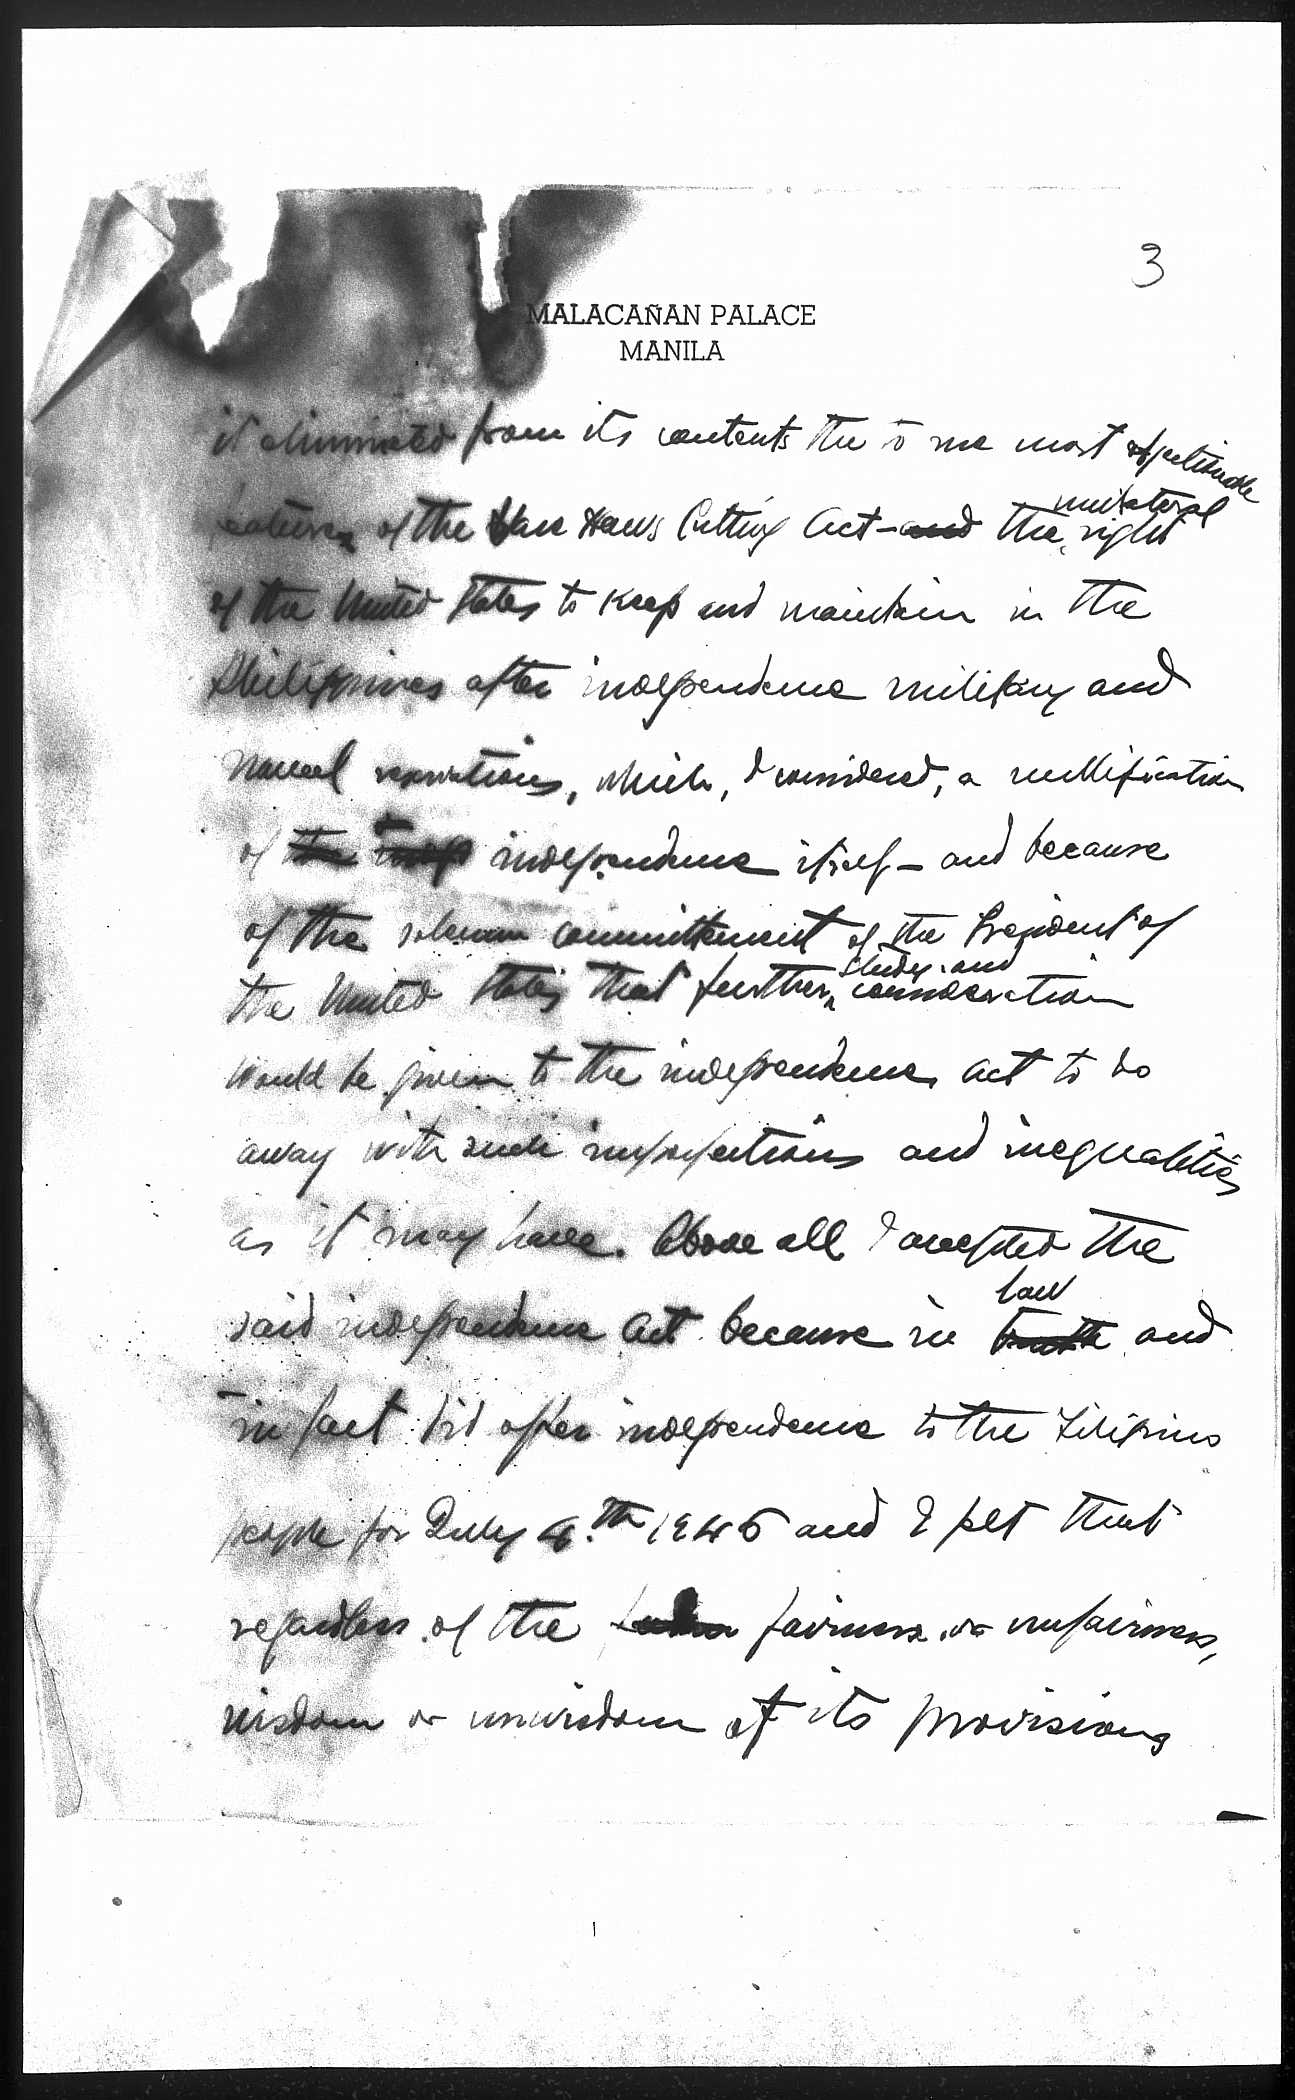 3
MALACAÑAN PALACE
MANILA
it eliminated from its contents the to me most objectionable
features of the Hare Haws Cutting Act - and the unilateral right
of the United States to keep and maintain in the
Philippines after independence military and
naval reservations, which, I considered, a nullification
of the indep independence itself - and because
of the solemn committement of the President of
the United States that further study and consideration
would be given to the independence act to do
away with such imperfections and inequalities
as it may have. Above all I accepted the
said independence Act because in law truth and
in fact did offer independence to the Filipino
people for July 4th 1946 and I felt that
regardless of the fairness or unfairness,
wisdom or unwisdom of its provisions